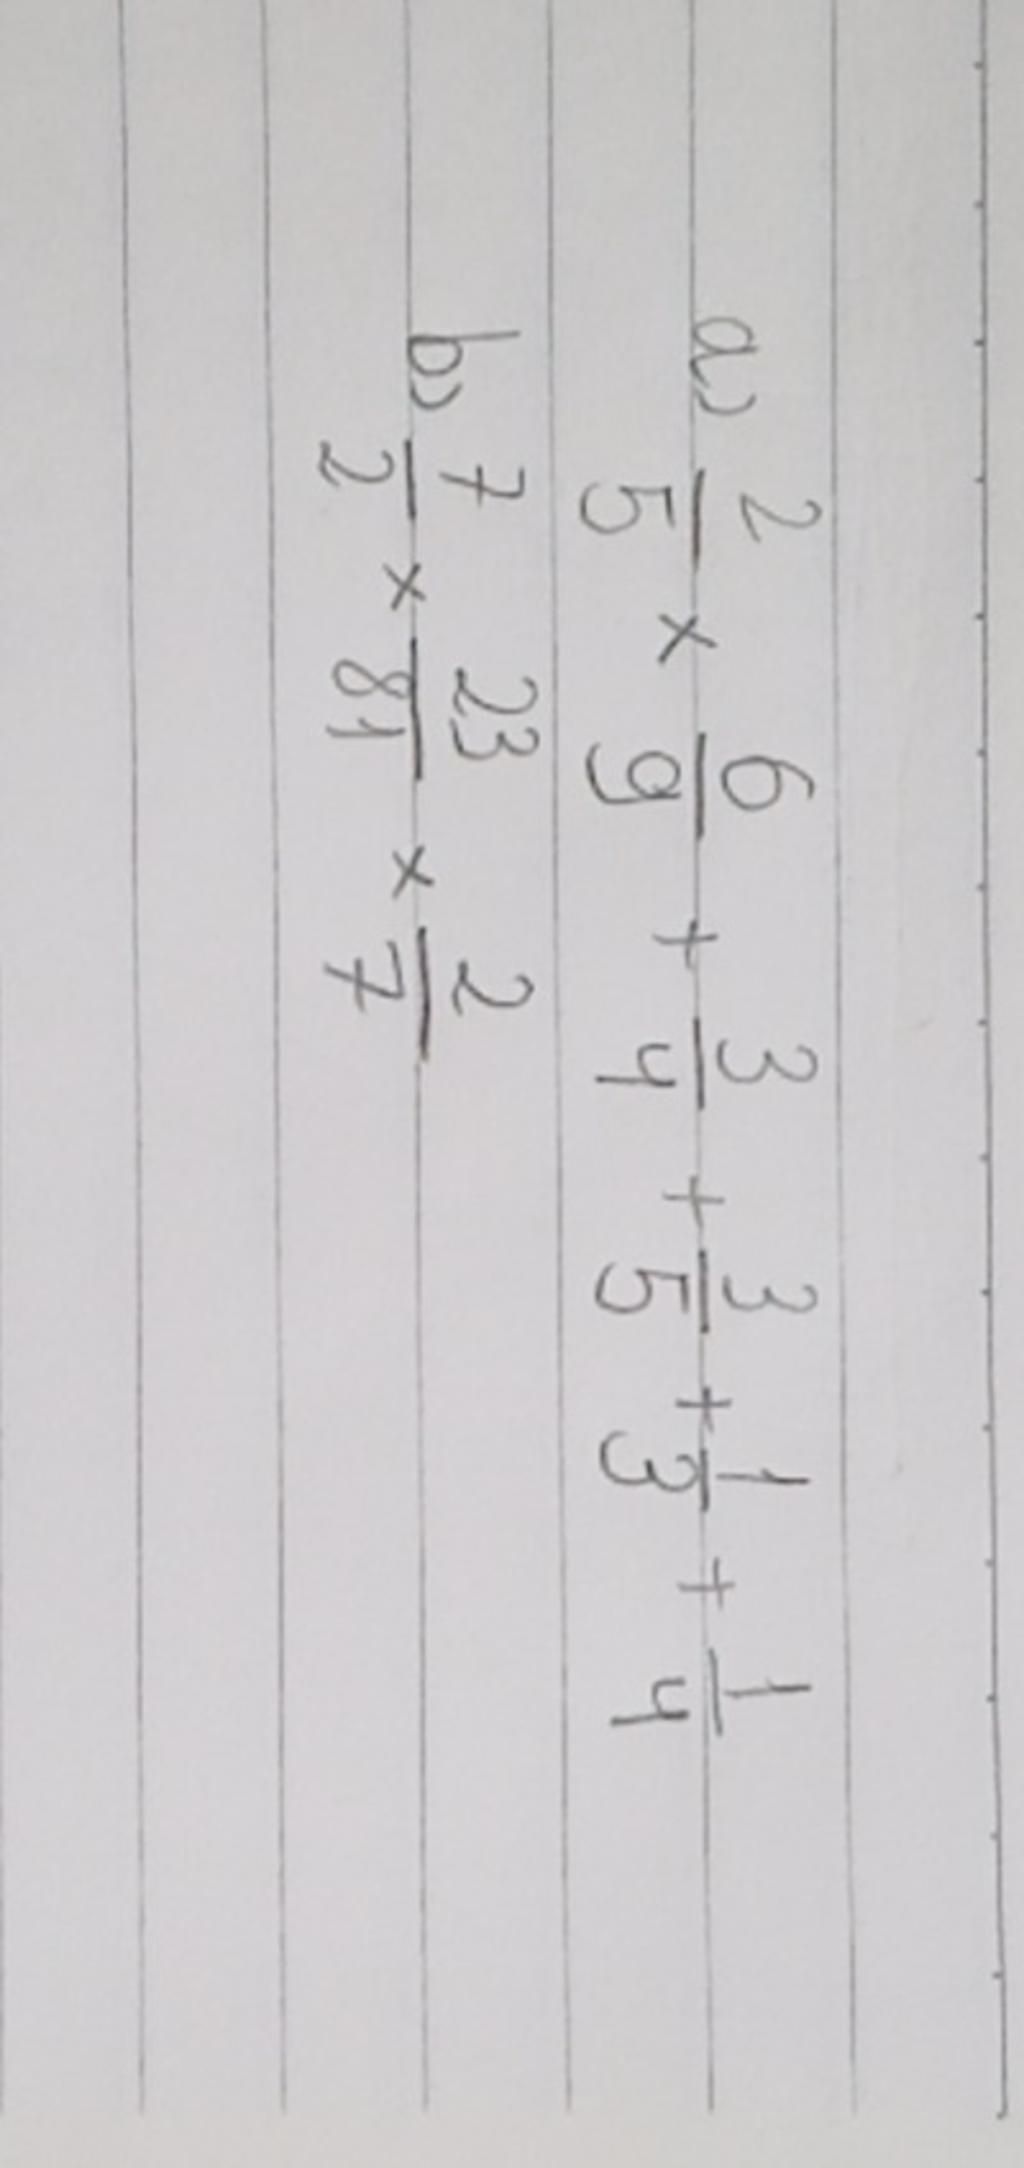 a) 2/5 × 6/9 + 3/4 + 3/5 + 1/3 + 1/4
b) 7/2 × 23/81 × 2/7